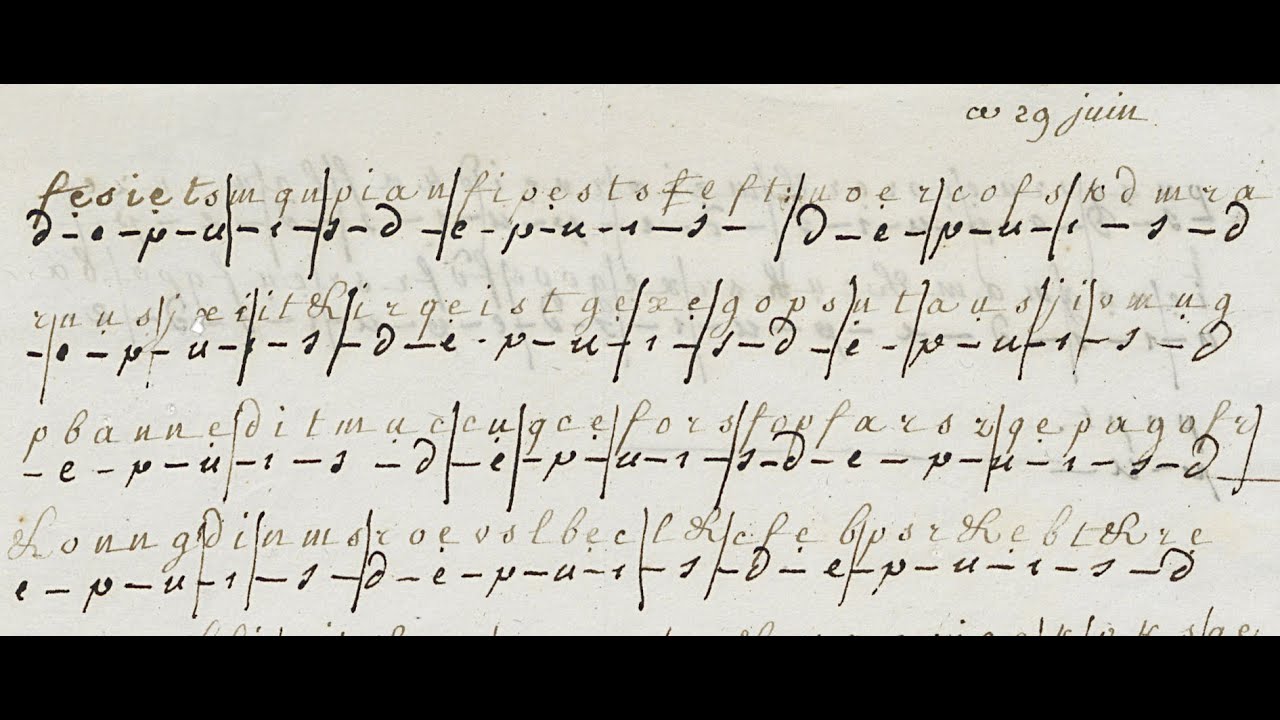 ce 29 juin
fesiets/mqn/pian/fipestsfeft:/noer/cofs/kdmra
d-e-p-u/-i-/s-d-/e-p-u-i-s-/d-e-/p-u-/i-s-d
r/nus/jxi/it&/irgeist ge/xe/gops/nt/aus/ji/omug
-/e-p-u-/i-s-/d-e-p-u-/i-/s-d-/e-/p-u-/i-s-d
pbanne/ditmuc/cu/gce/fors/fopfarsr/gepagofr/
-e-p-u/-i-s-d/-e/-p-/u-i-/s-d-e-p-/u-i-s-d
&onng/d/inms/roevslbec/l&/cfeb/psr&ebt&re
e-p-u-/i/-s-/d-e-p-u-i/-s-/d-e-/p-u-i-s-d